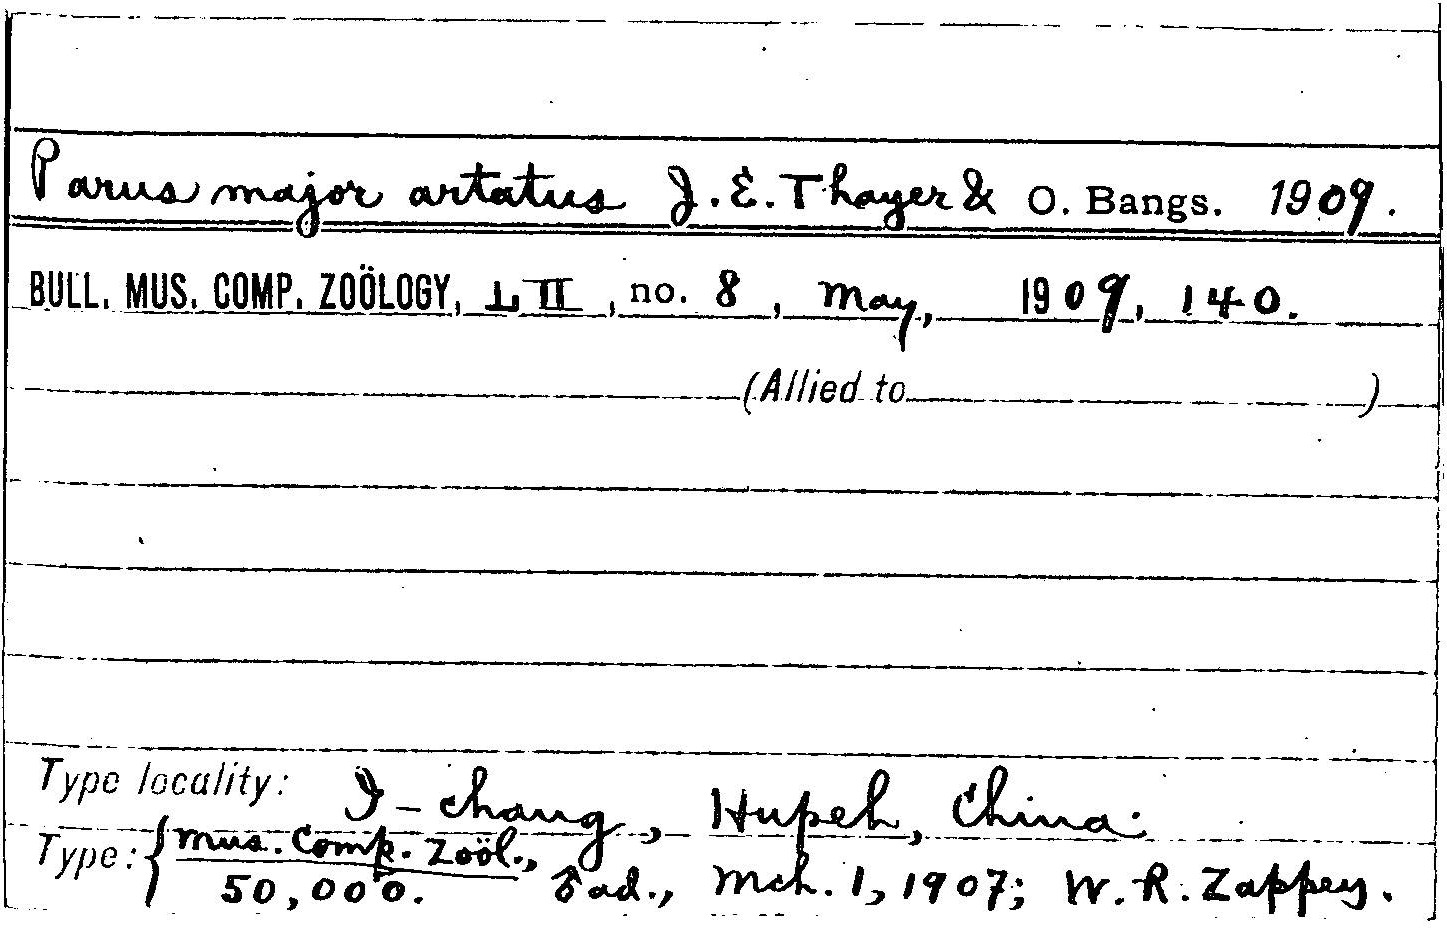 Parus major artatus J. E. Thayer & O. Bangs. 1909.
BULL. MUS. COMP. ZOÖLOGY, LII, no. 8, May, 1909, 140.
(Allied to )
Type locality: I-chang, Hupeh, China.
Type: { Mus. Comp. Zoöl.,
50,000. ♂ ad., Mch. 1, 1907; W. R. Zappey.